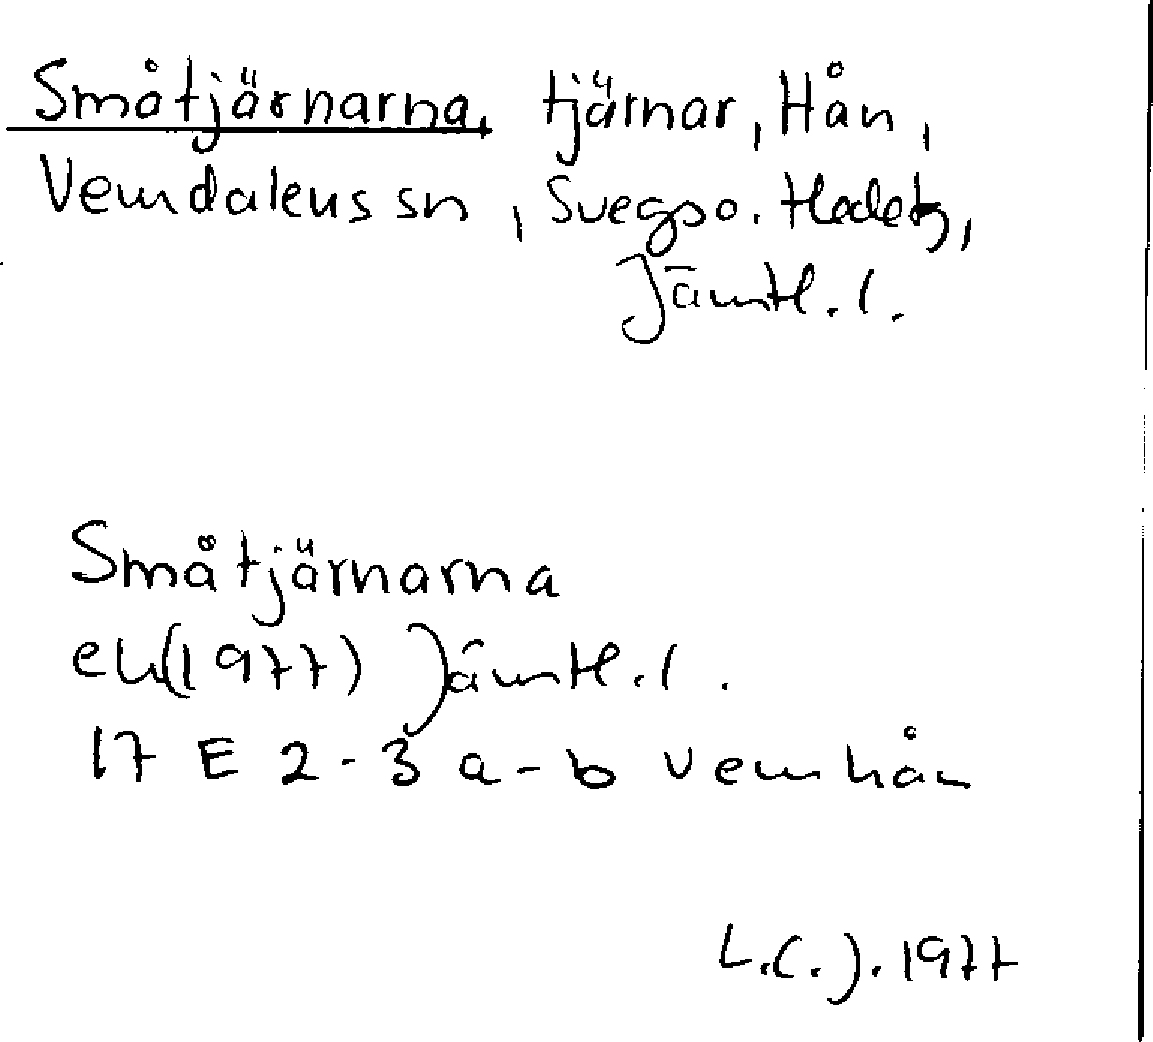 Småtjärnarna, tjärnar, Hån,
Vemdalens sn, Svegs o. Hede tg,
Jämtl. l.
Småtjärnarna
ek (1977) Jämtl. l.
17 E 2-3 a-b Vemhån
L.C.J. 1977